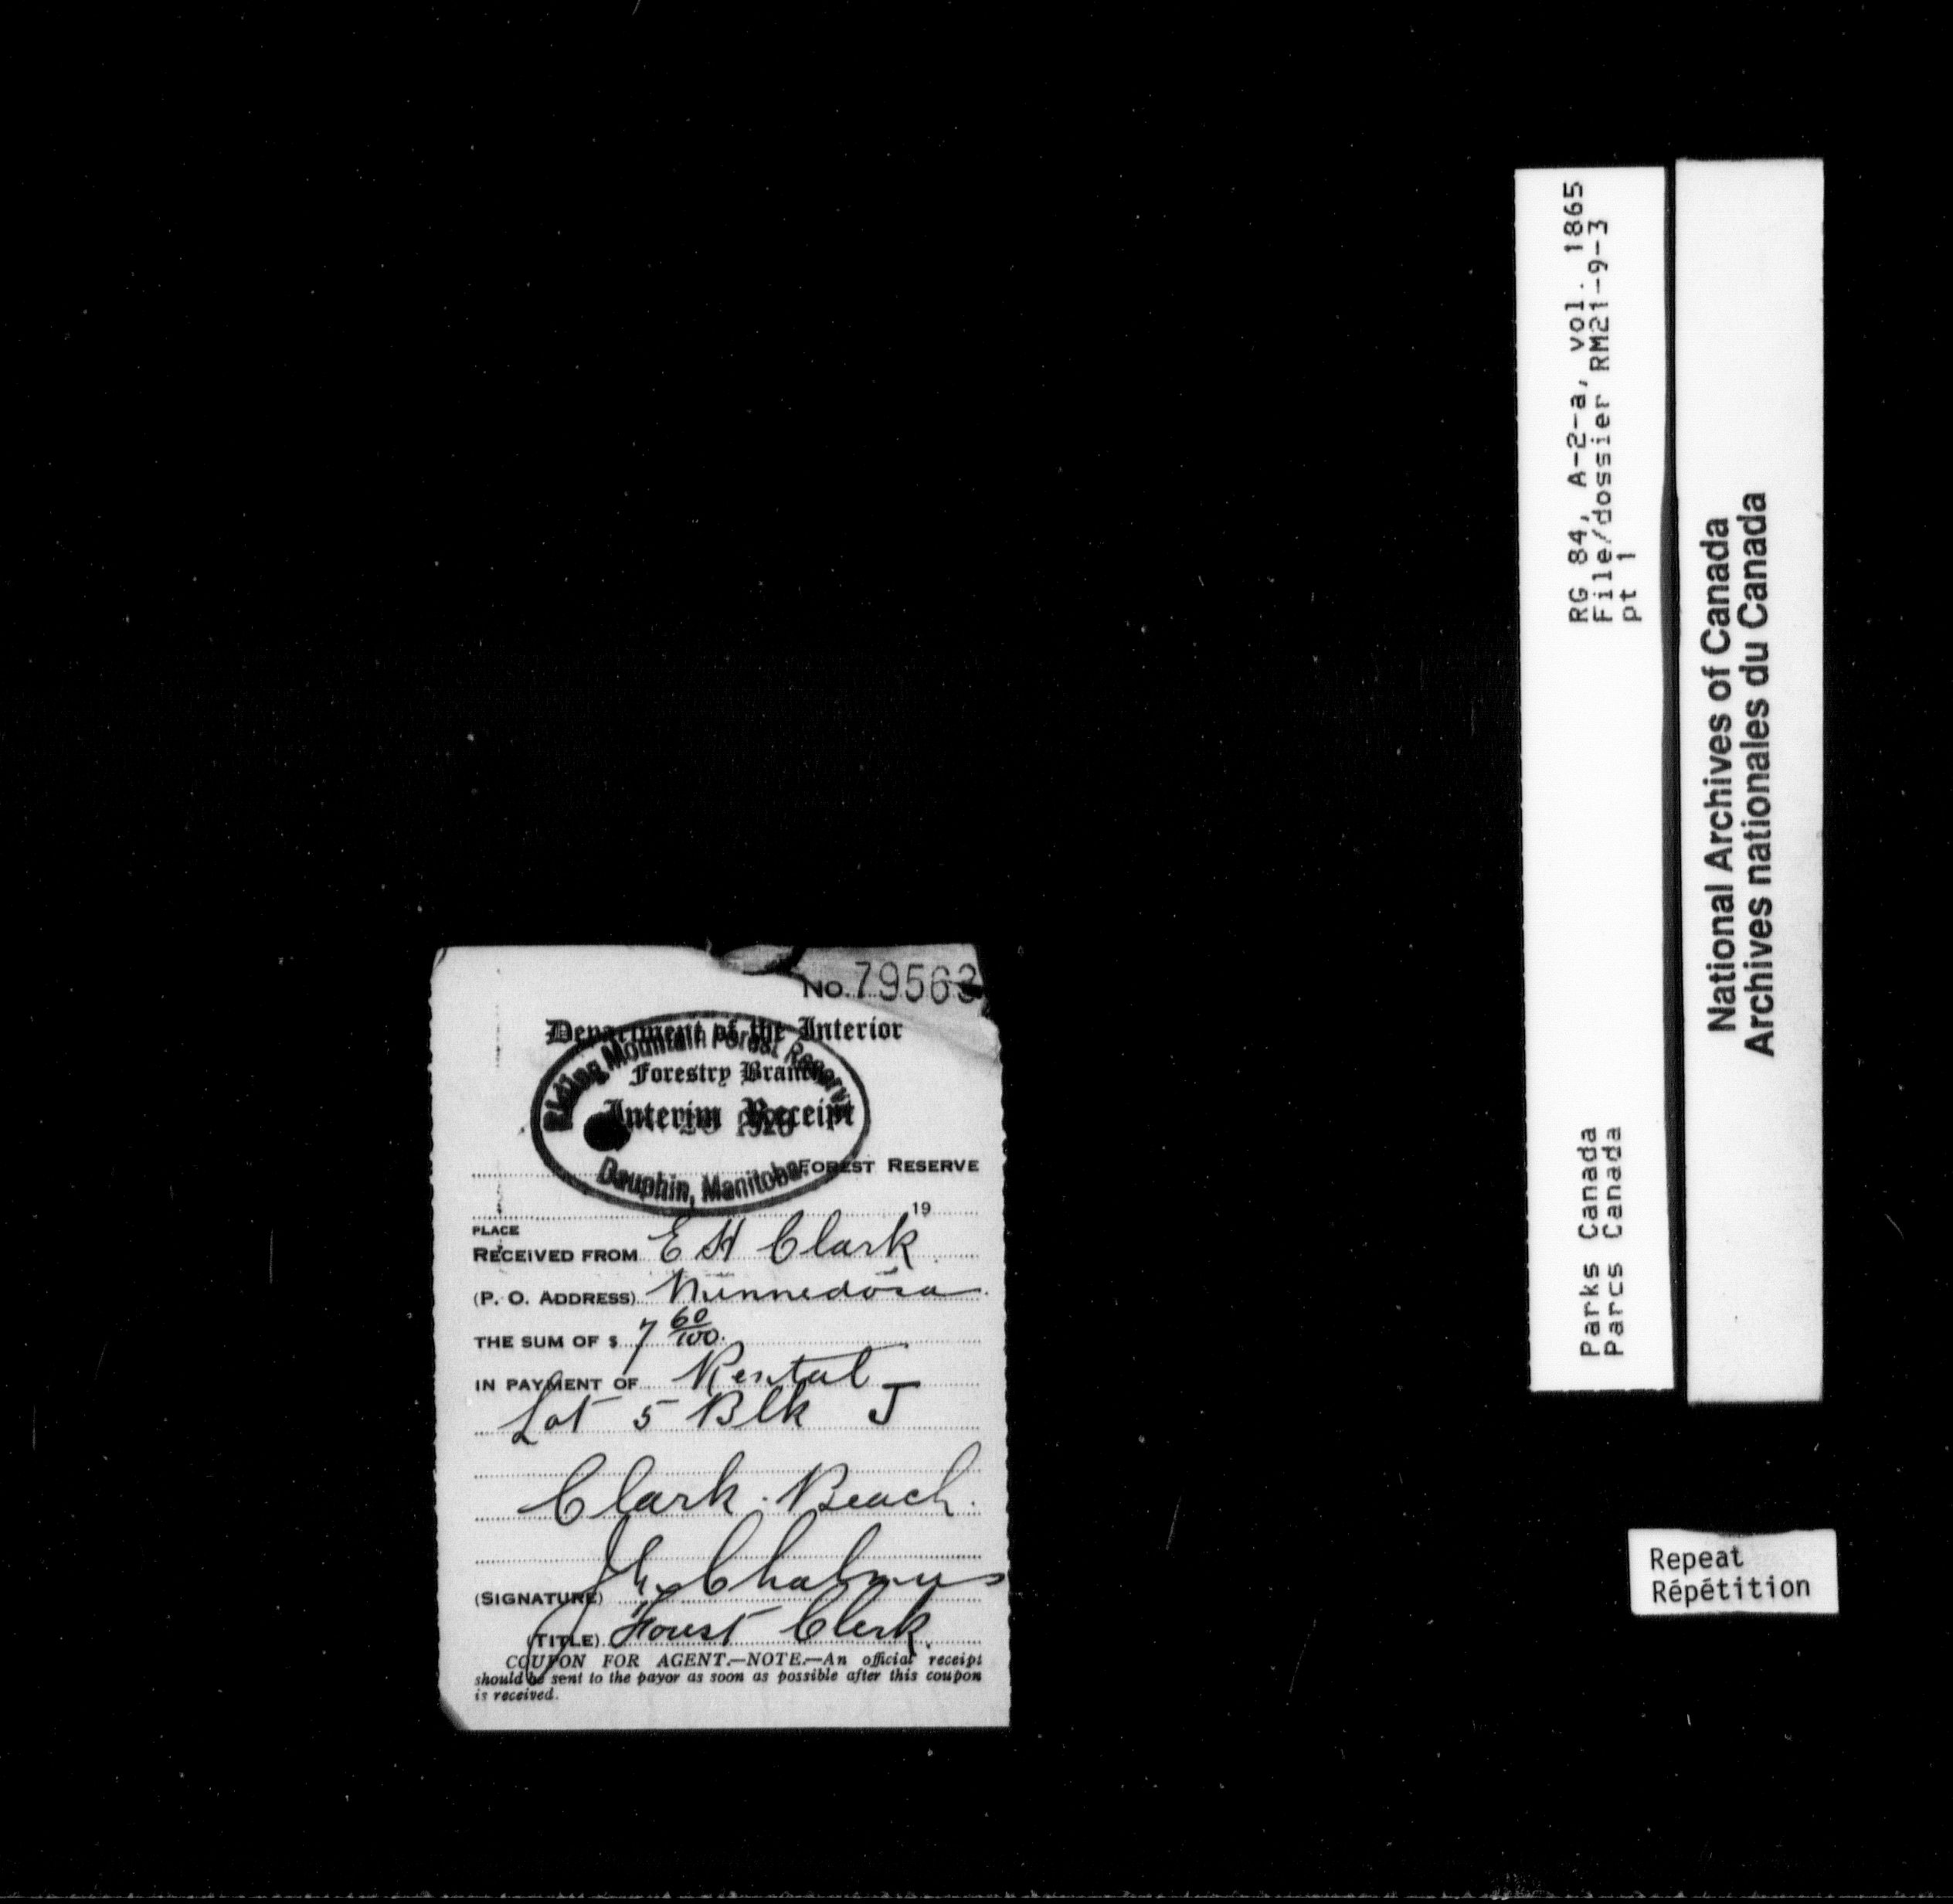 No. 79563
Department of the Interior
Forestry Branch
Interim Receipt
Riding Mountain Forest Reserve
1928
Dauphin, Manitoba.
FOREST RESERVE
19
PLACE
RECEIVED FROM E H Clark
(P. O. ADDRESS) Minnedosa
THE SUM OF $ 7 60/100
IN PAYMENT OF Rental
Lot 5 Blk J
Clark Beach.
(SIGNATURE) Chalmers
(TITLE) Forest Clerk.
COUPON FOR AGENT.—NOTE.—An official receipt
should be sent to the payor as soon as possible after this coupon
is received.
RG 84, A-2-a, vol. 1865
File/dossier RM21-9-3
pt 1
Parks Canada
Parcs Canada
National Archives of Canada
Archives nationales du Canada
Repeat
Répétition